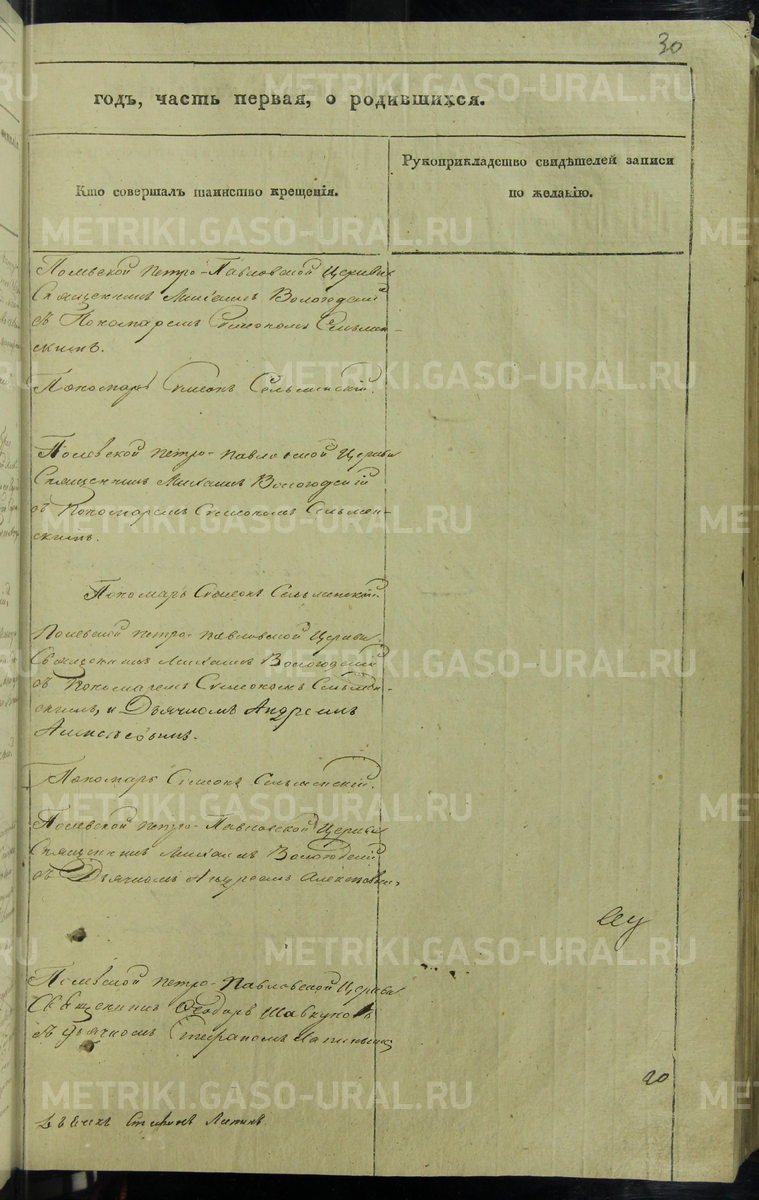 30
годъ, часть первая, о родившихся.
Кто совершалъ таинство крещенія.
Рукоприкладство свидѣтелей записи
по желанію.
Полевской Петро-Павловской Церкви
Священникъ Михаилъ Вологодскій
съ Пономаремъ Симеономъ Сельмен-
скимъ.
Пономарь Симеонъ Сельменскій.
Полевской Петро-Павловской Церкви
Священникъ Михаилъ Вологодскій
съ Пономаремъ Симеономъ Сельмен-
скимъ.
Пономарь Симеонъ Сельменскій.
Полевской Петро-Павловской Церкви
Священникъ Михаилъ Вологодскій
съ Пономаремъ Симеономъ Сельмен-
скимъ, и Дьячкомъ Андреемъ
Алексѣевымъ.
Пономарь Симеонъ Сельменскій.
Полевской Петро-Павловской Церкви
Священникъ Михаилъ Вологодскій
съ Дьячкомъ Андреемъ
Полевской Петро-Павловской Церкви
Священникъ Ѳеодоръ Шавкуновъ
съ Дьячкомъ Стефаномъ
20
METRIKI.GASO-URAL.RU